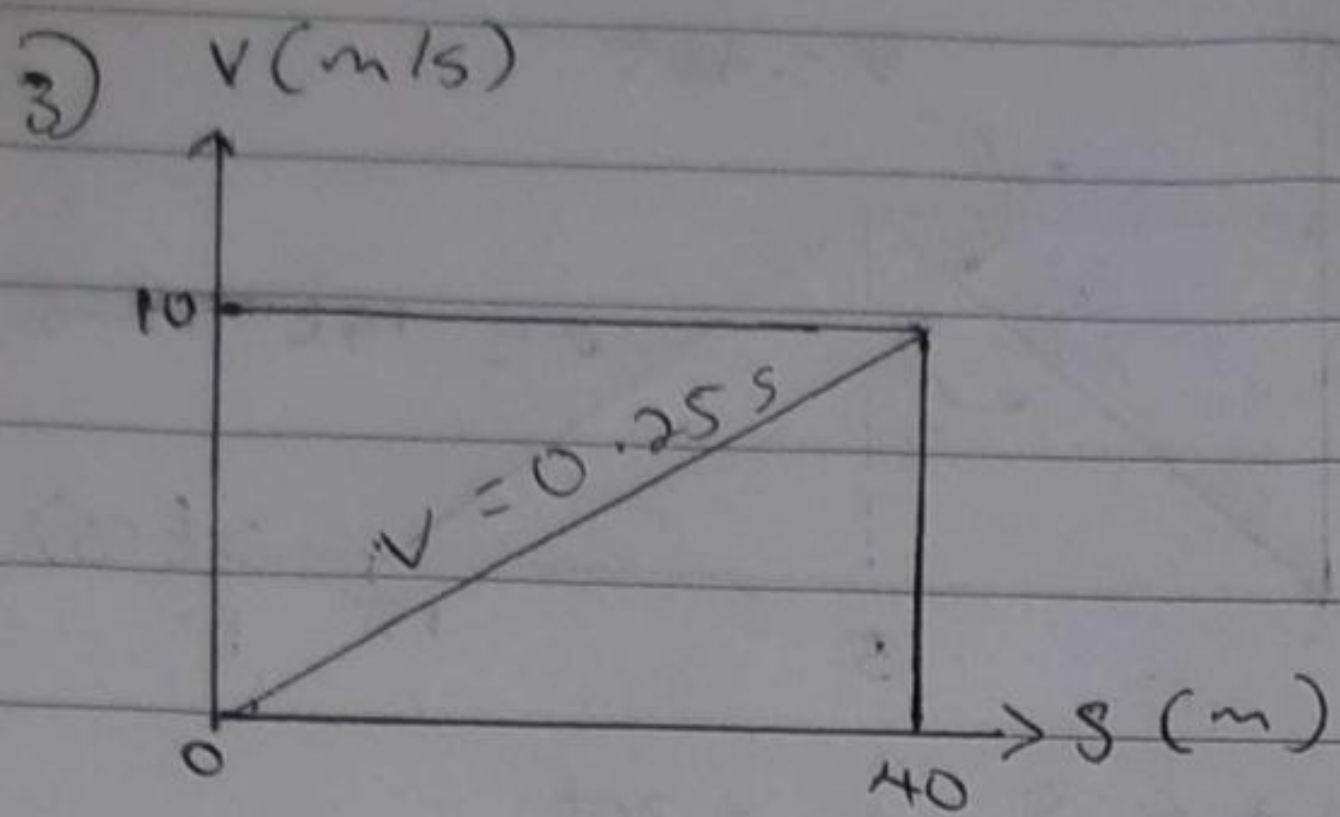 3) V (m/s)
10
V = 0.25 s
0
40
S (m)